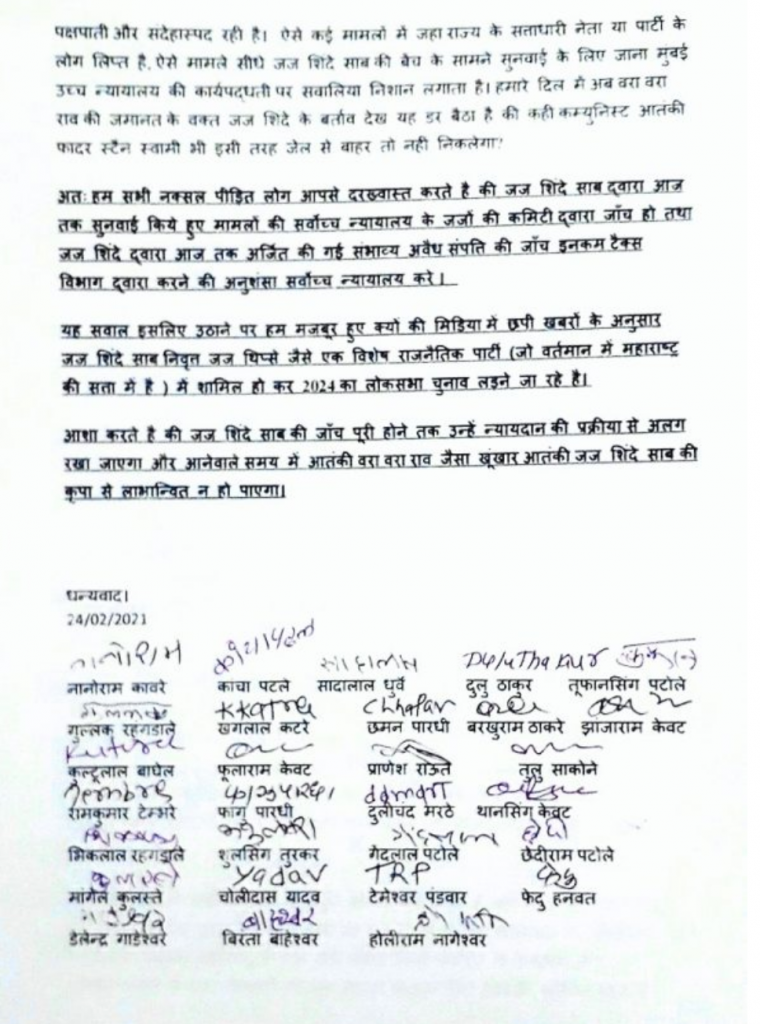 पक्षपाती और संदेहास्पद रही है। ऐसे कई मामलों में जहा राज्य के सत्ताधारी नेता या पार्टी के
लोग लिप्त है, ऐसे मामले सीधे जज शिंदे साब की बेंच के सामने सुनवाई के लिए जाना मुंबई
उच्च न्यायालय की कार्यपद्धती पर सवालिया निशान लगाता है। हमारे दिल में अब वरा वरा
राव की जमानत के वक्त जज शिंदे के बर्ताव देख यह डर बैठा है की कही कम्युनिस्ट आतंकी
फादर स्टैन स्वामी भी इसी तरह जेल से बाहर तो नही निकलेगा?
अतः हम सभी नक्सल पीड़ित लोग आपसे दरख्वास्त करते है की जज शिंदे साब द्वारा आज
तक सुनवाई किये हुए मामलों की सर्वोच्च न्यायालय के जजों की कमिटी द्वारा जाँच हो तथा
जज शिंदे द्वारा आज तक अर्जित की गई संभाव्य अवैध संपति की जाँच इनकम टैक्स
विभाग द्वारा करने की अनुशंसा सर्वोच्च न्यायालय करे।
यह सवाल इसलिए उठाने पर हम मजबूर हुए क्यों की मिडिया में छपी खबरों के अनुसार
जज शिंदे साब निवृत्त जज थिप्से जैसे एक विशेष राजनैतिक पार्टी (जो वर्तमान में महाराष्ट्र
की सता में है ) में शामिल हो कर 2024 का लोकसभा चुनाव लड़ने जा रहे है।
आशा करते है की जज शिंदे साब की जाँच पूरी होने तक उन्हें न्यायदान की प्रक्रीया से अलग
रखा जाएगा और आनेवाले समय में आतंकी वरा वरा राव जैसा खूंखार आतंकी जज शिंदे साब की
कृपा से लाभान्वित न हो पाएगा।
धन्यवाद।
24/02/2021
नानोराम कावरे काचा पटले सादालाल धुर्वे दुलु ठाकुर तूफानसिंग पटोले
Kkatre Chhaman
गुल्लक रहगडाले छगलाल कटरे छमन पारधी बरखुराम ठाकरे झाजाराम केवट
कल्टूलाल बाघेल फूलाराम केवट प्राणेश राऊत तुलु साकोने
रामकुमार टेम्भरे फागु पारधी दुलीचंद मरठे थानसिंग केवट
भिकलाल रहगडाले शुलसिंग तुरकर गेदलाल पटोले छेदीराम पटोले
yadav TRP
मांगेल कुलस्ते चोलीदास यादव टेमेश्वर पंडवार फेदु हनवत
डेलेन्द्र गाडेश्वर बिरता बाहेश्वर होलीराम नागेश्वर